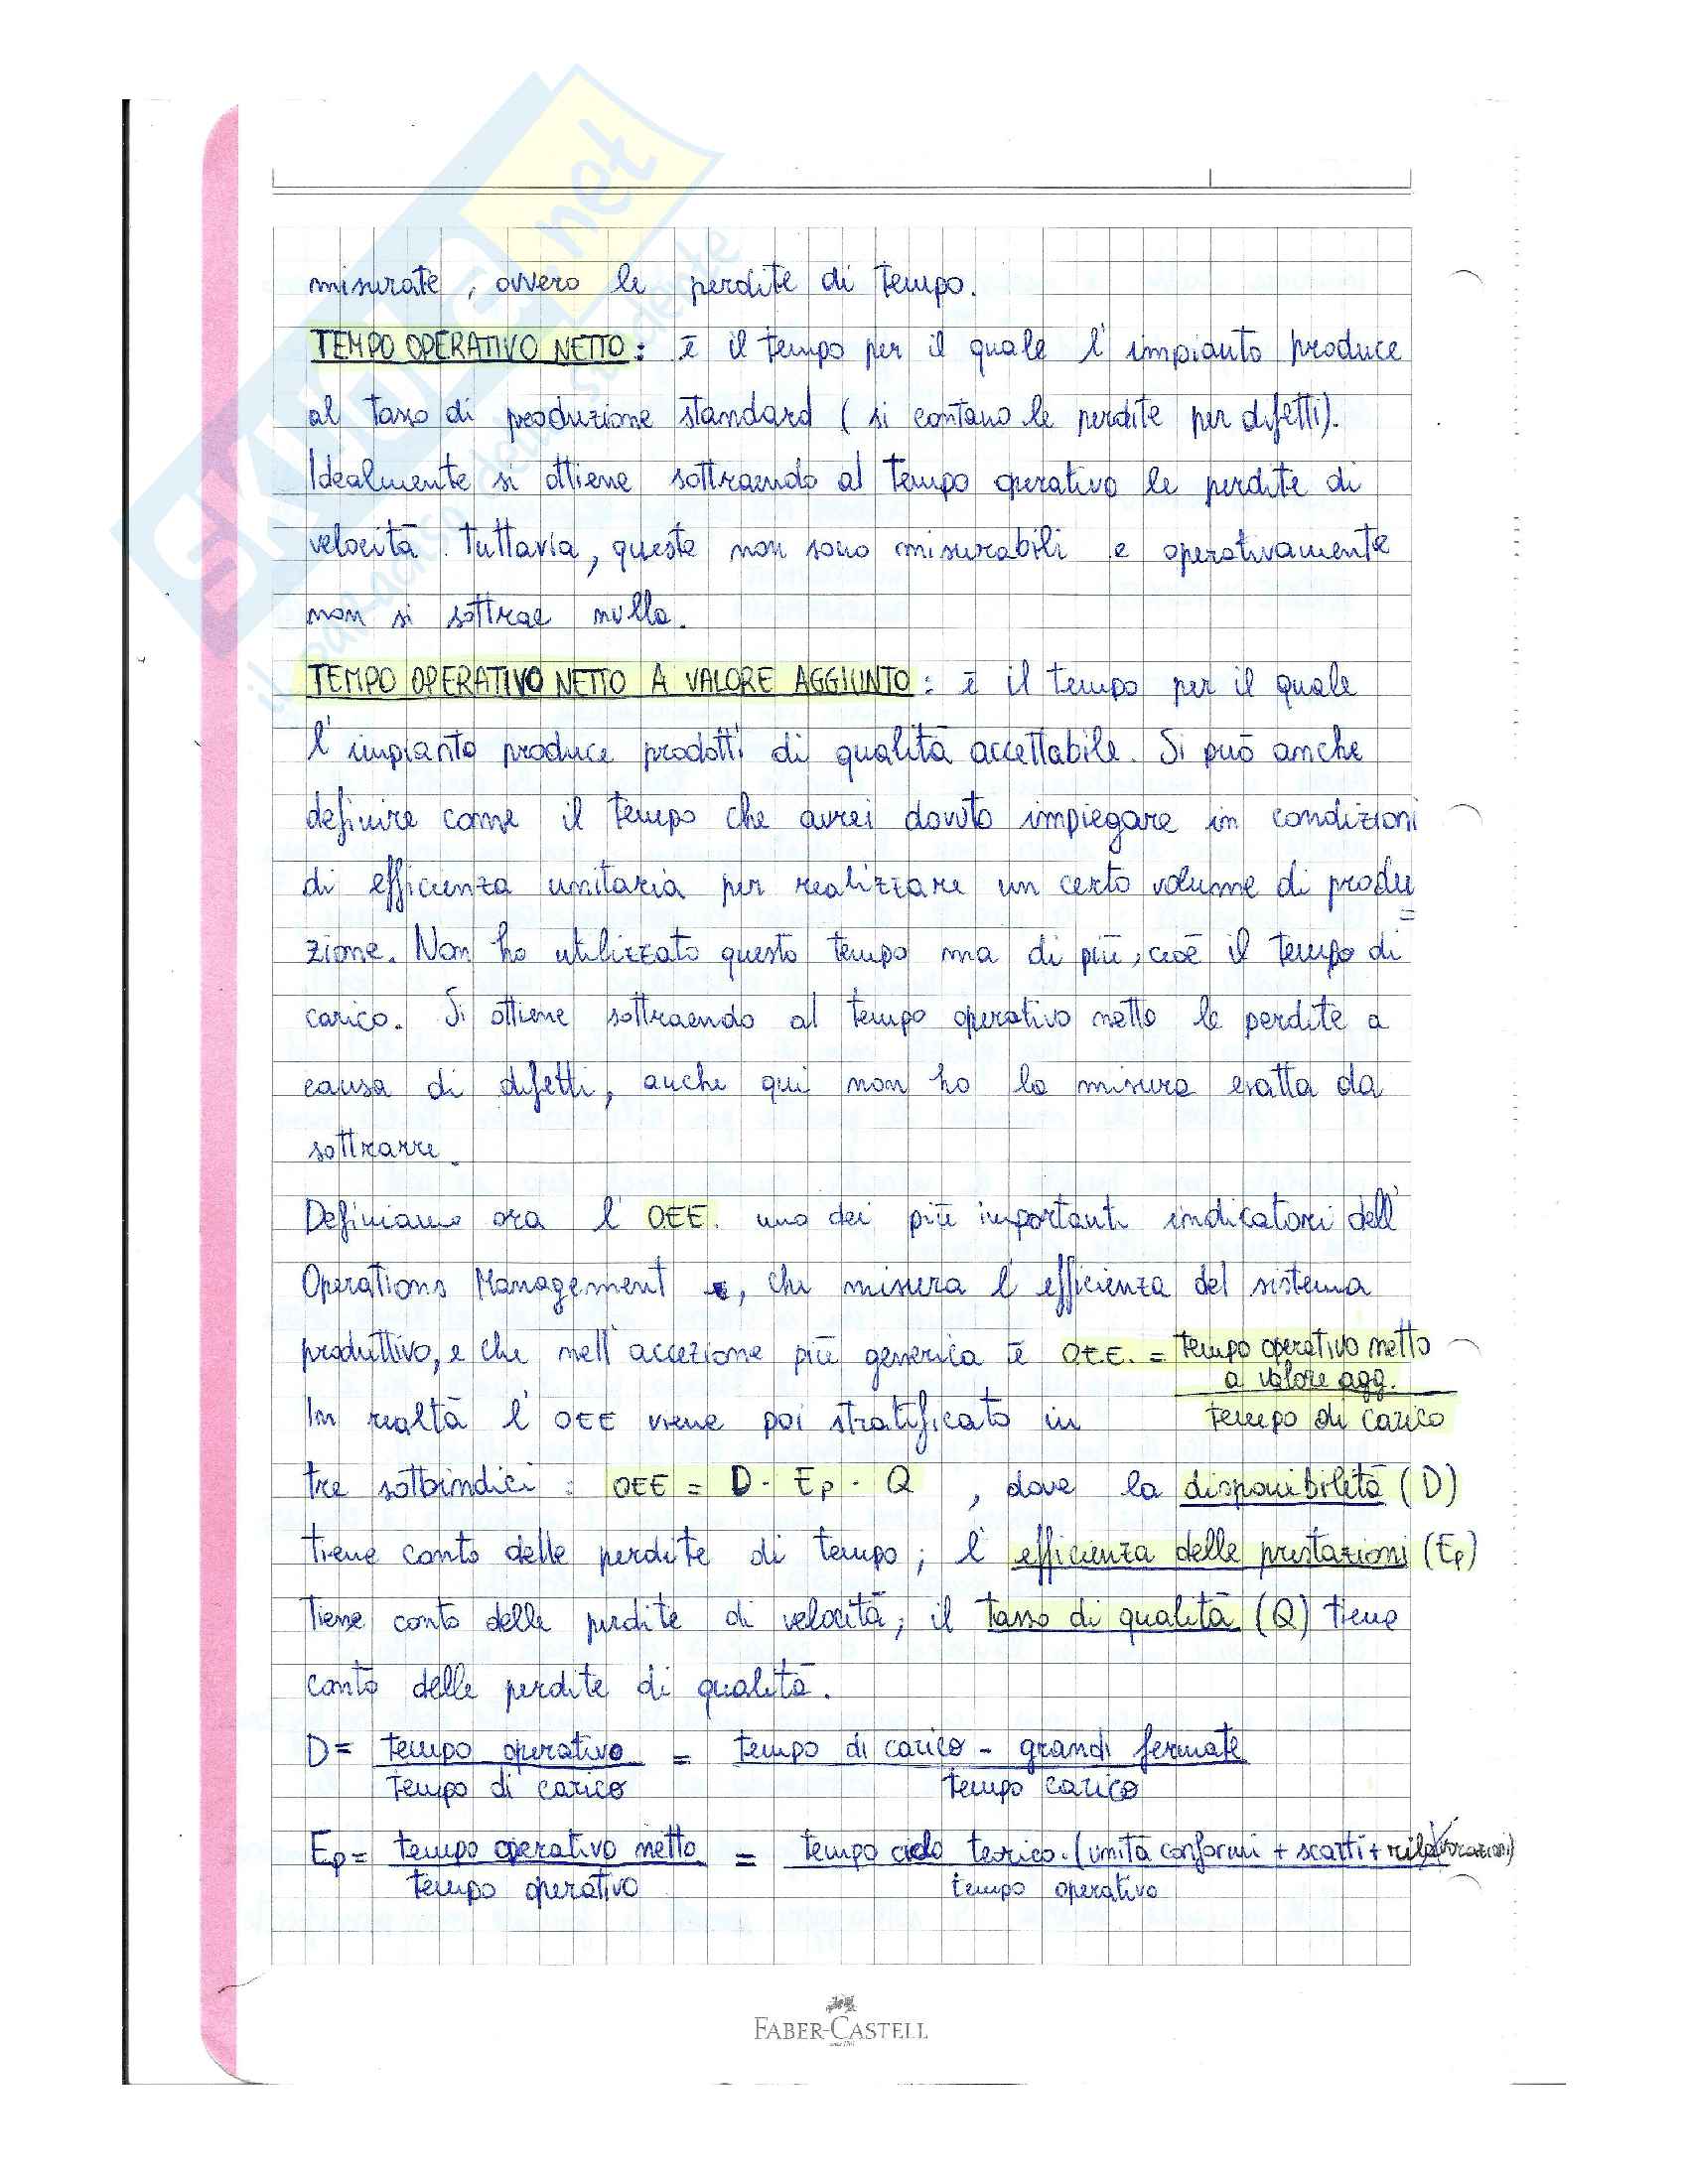 SKUOLA.net
il paradiso dello studente
misurate, ovvero le perdite di tempo.
TEMPO OPERATIVO NETTO: è il tempo per il quale l'impianto produce
al tasso di produzione standard (si contano le perdite per difetti).
Idealmente si ottiene sottraendo al tempo operativo le perdite di
velocità. Tuttavia, queste non sono misurabili e operativamente
non si sottrae nulla.
TEMPO OPERATIVO NETTO A VALORE AGGIUNTO: è il tempo per il quale
l'impianto produce prodotti di qualità accettabile. Si può anche
definire come il tempo che avrei dovuto impiegare in condizioni
di efficienza unitaria per realizzare un certo volume di produ=
zione. Non ho utilizzato questo tempo ma di più, cioè il tempo di
carico. Si ottiene sottraendo al tempo operativo netto le perdite a
causa di difetti, anche qui non ho la misura esatta da
sottrarre.
Definiamo ora l'OEE. uno dei più importanti indicatori dell'
Operations Management, che misura l'efficienza del sistema
produttivo, e che nell'accezione più generica è O.E.E. = tempo operativo netto
a valore agg.
In realtà l'OEE viene poi stratificato in tempo di carico
tre sottoindici: OEE = D · Ep · Q , dove la disponibilità (D)
tiene conto delle perdite di tempo; l'efficienza delle prestazioni (Ep)
tiene conto delle perdite di velocità; il tasso di qualità (Q) tiene
conto delle perdite di qualità.
D = tempo operativo = tempo di carico - grandi fermate
tempo di carico tempo carico
Ep = tempo operativo netto = tempo ciclo teorico · (unità conformi + scarti + rilavorazioni)
tempo operativo tempo operativo
FABER-CASTELL
since 1761